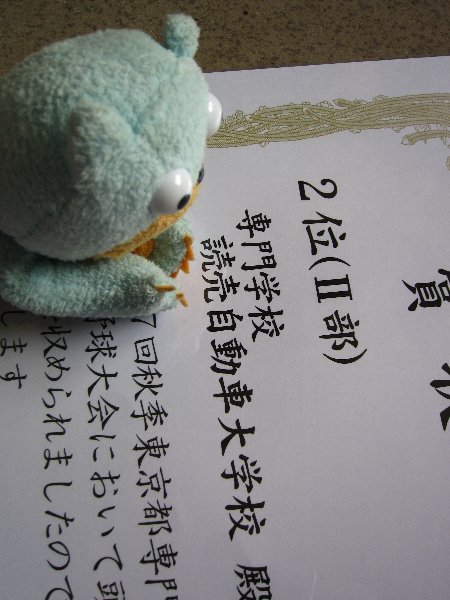 賞状
2位(Ⅱ部)
専門学校
読売自動車大学校 殿
7回秋季東京都専門
球大会において頭
収められましたので
します